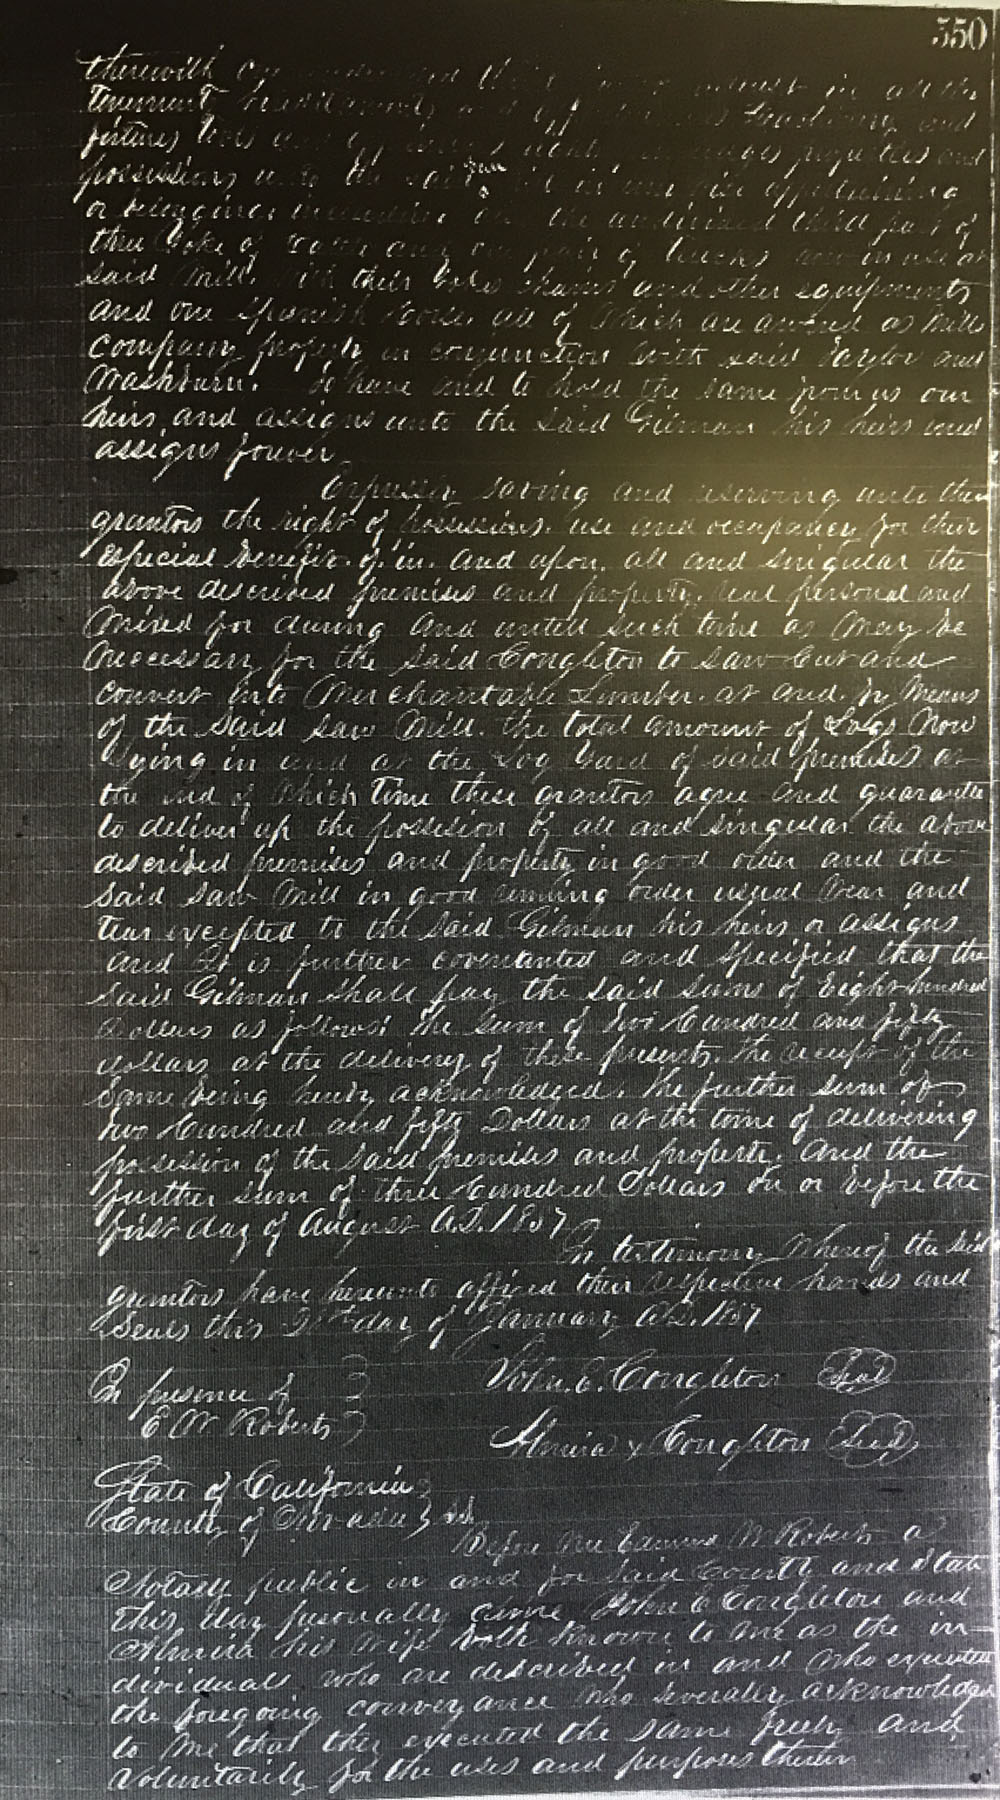 550
therewith
tenements hereditaments and
fixtures tools and privileges properties and
possessions unto the said in any wise appertaining
or belonging the undivided third part of
three Yoke of and one pair of trucks now in use at
said Mill, with their Yokes chains and other equipments
and one Spanish horse, all of which are owned as Mill
company property in conjunction with said Taylor and
Washburn. To have and to hold the same from us our
heirs, and assigns unto the said Gilman his heirs and
assigns forever
Expressly saving and reserving unto these
grantors the right of possession. use and occupancy for their
especial benefit. of. in. and upon. all and singular the
above described premises and property, real personal and
Mixed for during and untill such time as May be
necessary for the said Coughlton to saw cut and
convert into Merchantable Lumber. at and. by Means
of the said saw Mill. the total amount of Logs Now
lying in and at the Log Yard of said premises at
the end of which time these grantors agree and guarantee
to deliver up the possesion of all and singular the above
described premises and property in good order and the
said saw Mill in good running order usual wear and
tear excepted to the said Gilman his heirs or assigns
and It is further covenanted and specified that the
said Gilman shall pay the said sums of Eight hundred
dollars as follows: the sum of two hundred and fifty
dollars at the delivery of these presents. the receipt of the
same being hereby acknowledged. the further sum of
two hundred and fifty Dollars at the time of delivering
possession of the said premises and property. and the
further sum of three hundred Dollars on or before the
first day of August A.D. 1857
In testimony Whereof the said
grantors have hereunto affixed their respective hands and
seals this day of January A.D. 1857
In presence of } John. E. Coughlton Seal
E W Roberts } Almira x Coughlton Seal
State of California }
County of Nevada } ss
Before Me Edmund W Roberts a
Notary public in and for said County and State
this day personally came John E Coughlton and
Almira his wife both known to me as the in-
dividuals who are described in and who executed
the foregoing conveyance who severally acknowledged
to Me that they executed the same freely and
voluntarily for the uses and purposes therein